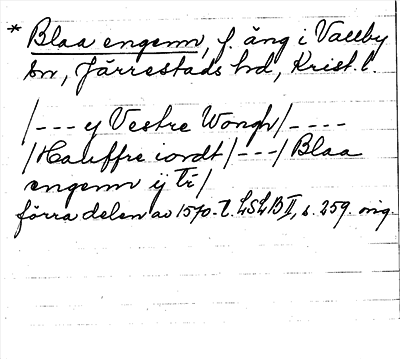 * Blaa engenn, f. äng i Vallby
sn, Järrestads hd, Krist. l.
/--- y Vestre Wongh/----
/Hauffre iordt/---/Blaa
engenn ij Tr/
förra delen av 1570-t. LSLB II, s. 259. orig.